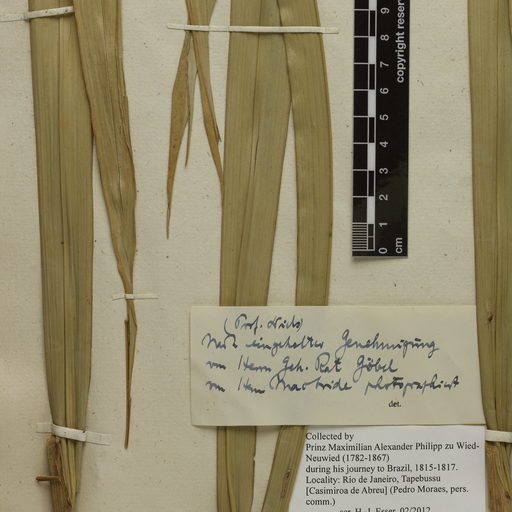 copyright reserv
9
8
7
6
5
4
3
2
1
0
cm
(Prof.
Nach eingeholter Genehmigung
von Herrn Geh. Rat Göbel
von Herrn Macbride photographiert
det.
Collected by
Prinz Maximilian Alexander Philipp zu Wied-
Neuwied (1782-1867)
during his journey to Brazil, 1815-1817.
Locality: Rio de Janeiro, Tapebussu
[Casimiroa de Abreu] (Pedro Moraes, pers.
comm.)
H.-J. Esser, 02/2012